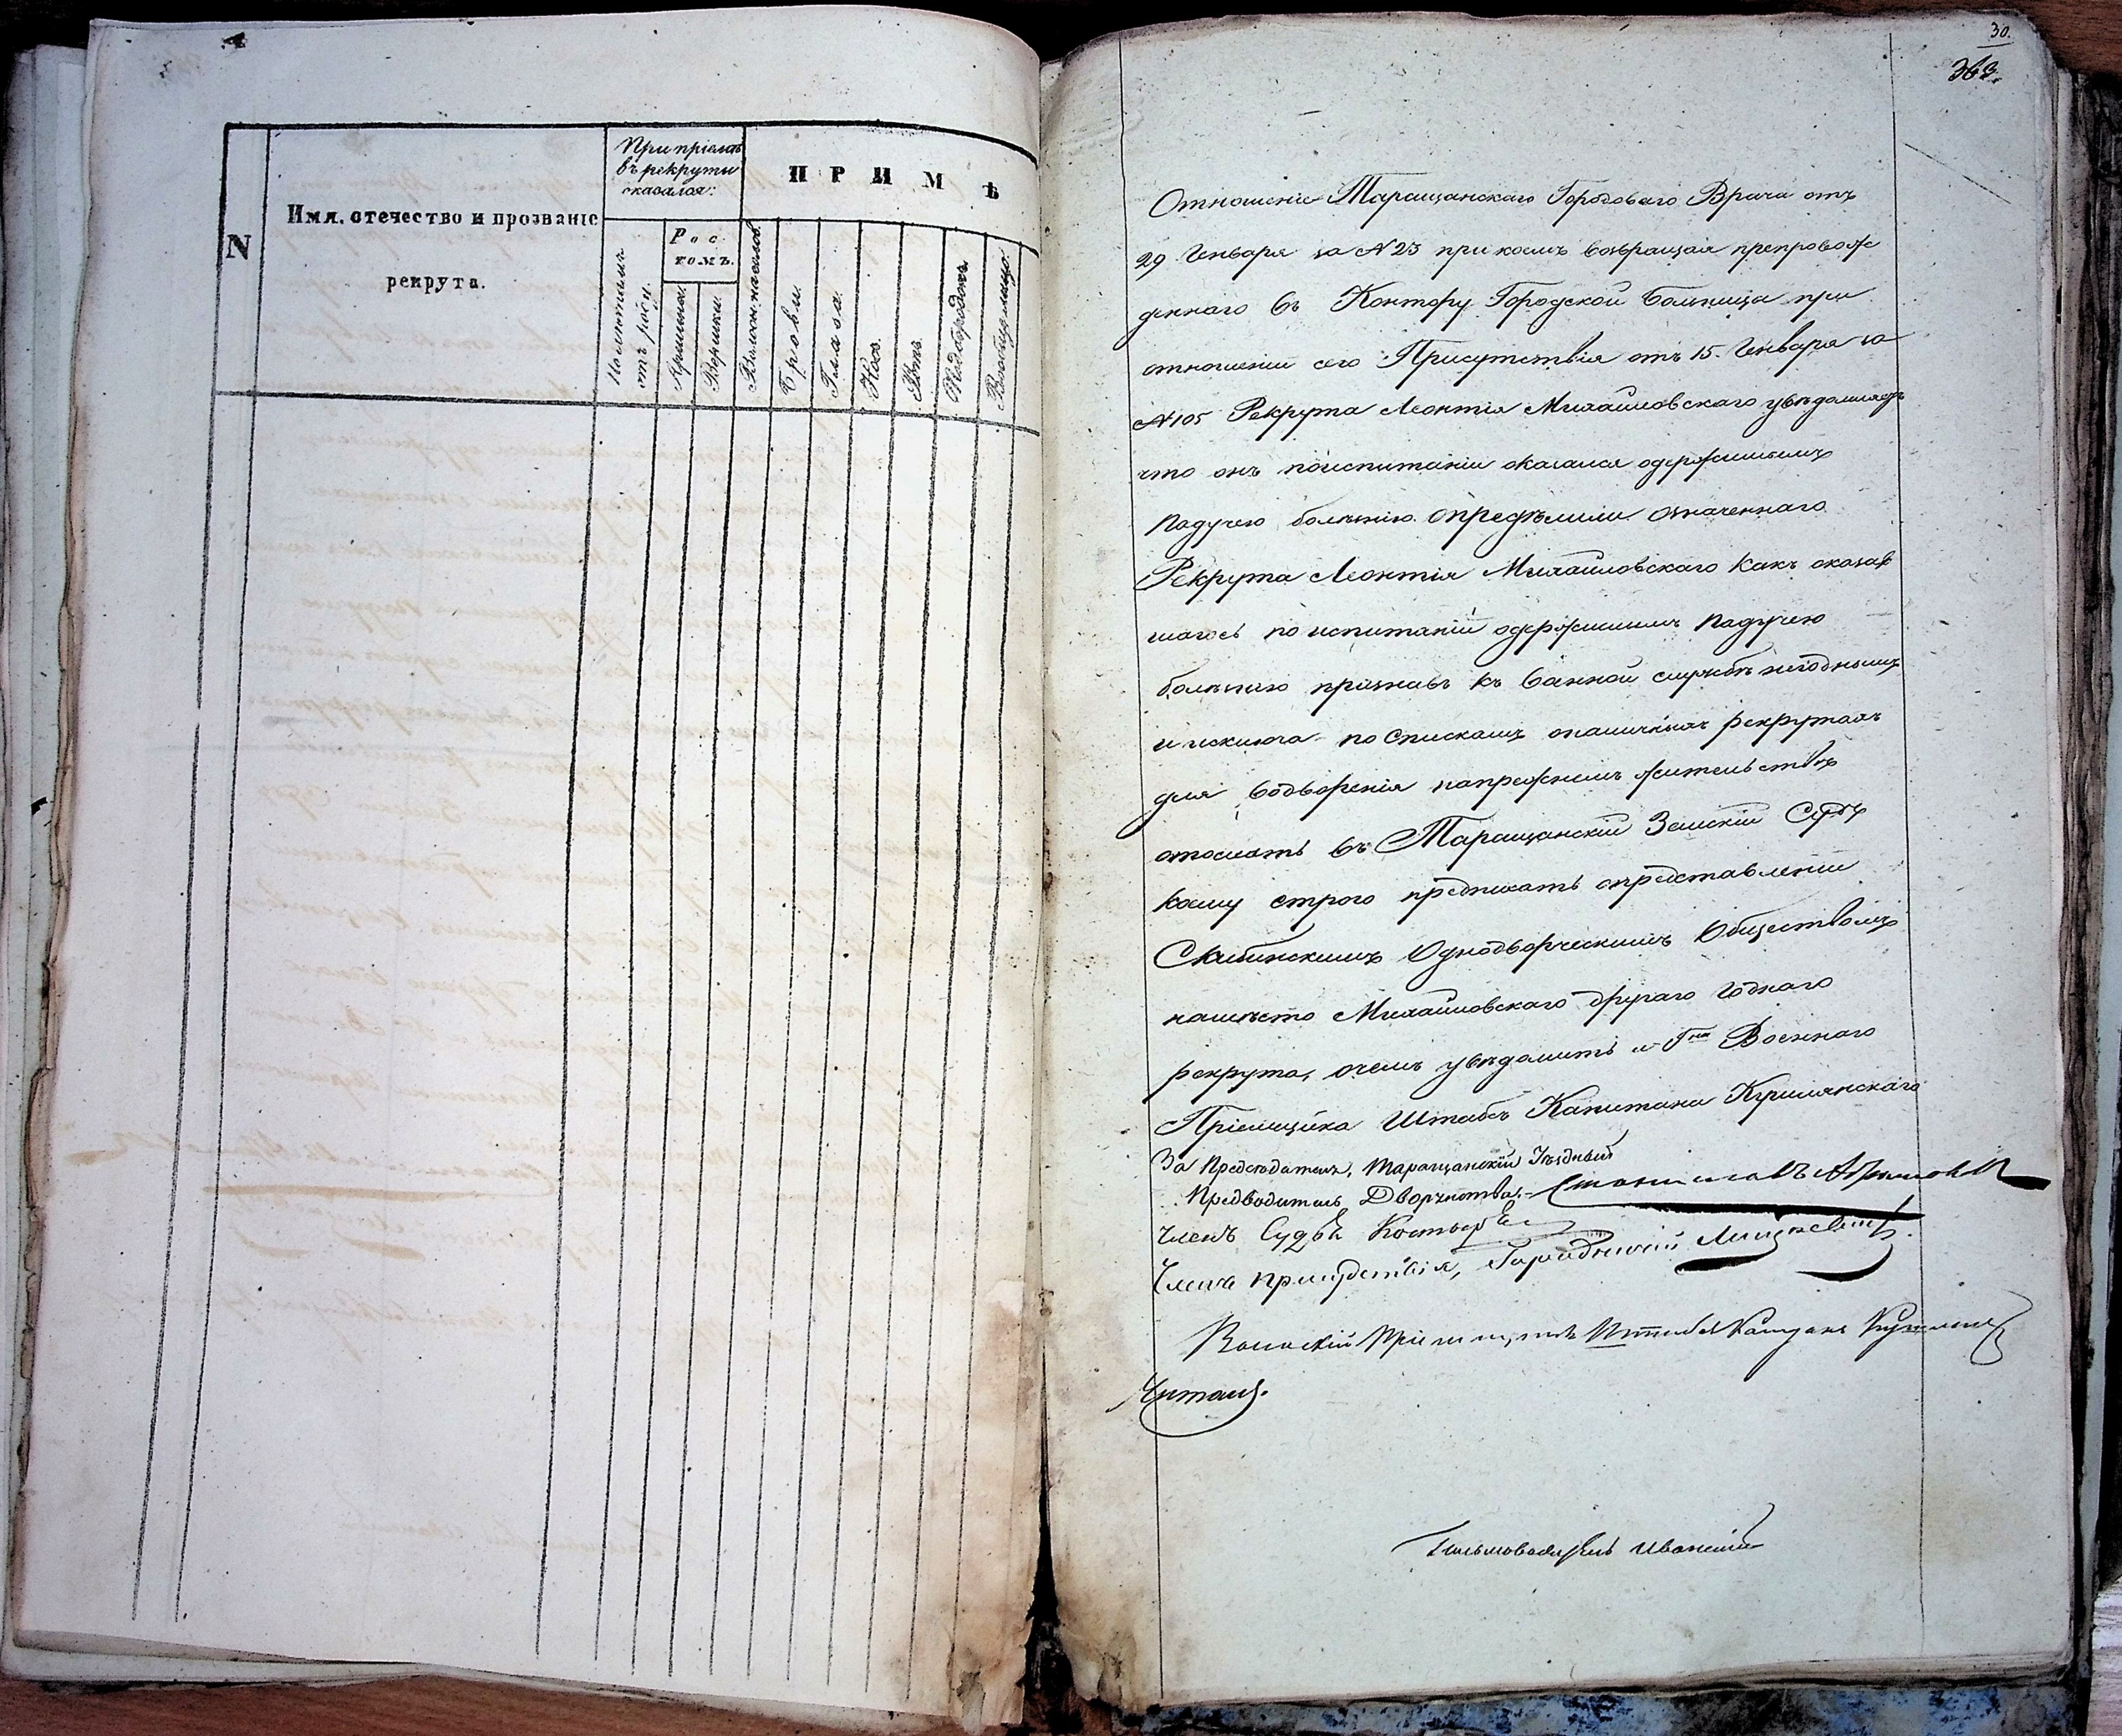 N
Имя, отечество и прозваніе
рекрута.
При пріемѣ
въ рекруты
оказался:
Р о с
томъ.
П Р И М Ѣ
отъ роду.
Аршины.
Вершки.
Брови.
Глаза.
Носъ.
Ротъ.
Подбородокъ.
30.
363.
Отношеніе Таращанскаго Городоваго Врача отъ
29 Генваря за N 23 при коемъ возвращая препровож
деннаго въ Контору Городской больницы при
отношеніи сего Присутствія отъ 15. Генваря за
N 105 Рекрута Леонтія Михайловскаго увѣдомляетъ
что онъ поиспытаніи оказался одержимымъ
падучею болѣзнію. Опредѣлили означеннаго
Рекрута Леонтія Михайловскаго какъ оказав
шагось по испытаніи одержимымъ падучею
болѣзнію признавъ къ военной службѣ негоднымъ
и исключа по спискамъ оналичныхъ рекрутахъ
для водворенія напрежнемъ жительствѣ
отослать въ Таращанскій Земскій Судъ
коему строго предписать опредставленіи
Скибинскимъ Однодворческимъ Обществомъ
намѣсто Михайловскаго другаго годнаго
рекрута, очемъ увѣдомить и Гна Военнаго
Пріемщика Штабсъ Капитана Кушлянскаго
За Предсѣдателя, Таращанскій Уѣздный
Предводитель Дворянства. Станиславъ
Членъ Судья
Членъ присудствія, Городничій
Воинскій Пріемщикъ Штабсъ Капитанъ
Читалъ.
Письмоводитель